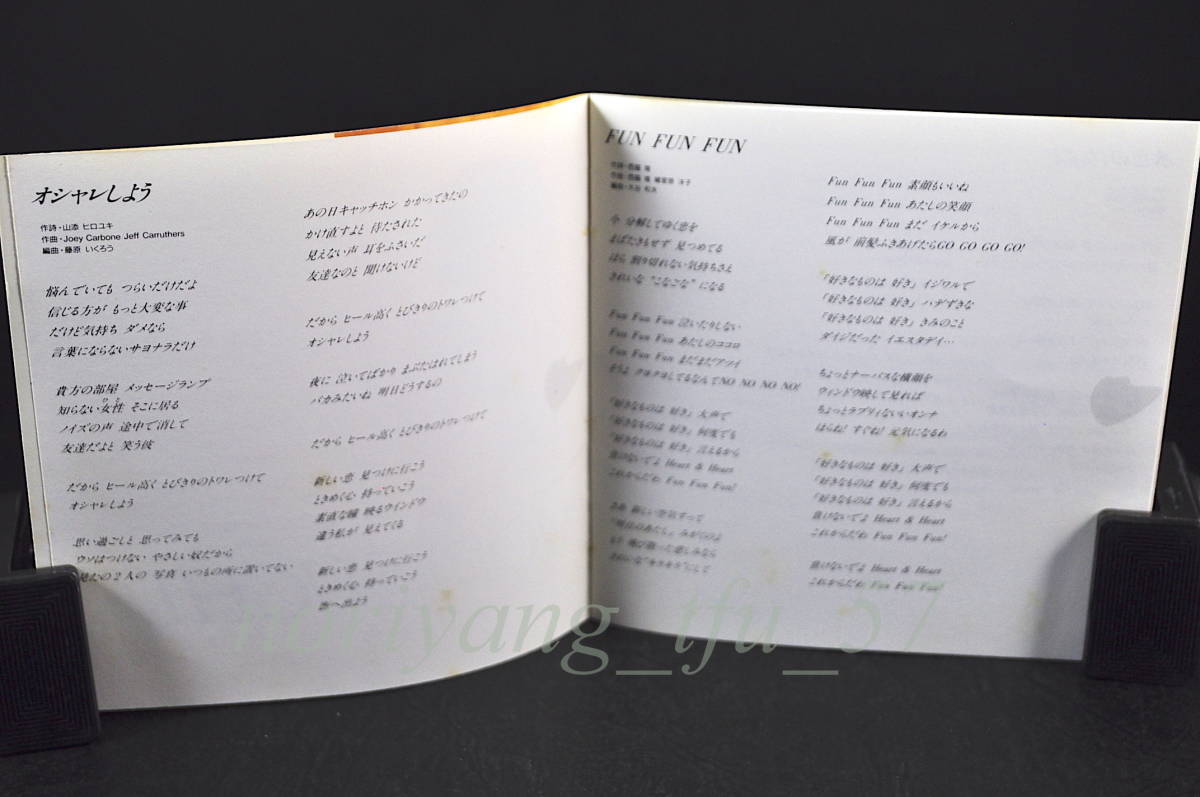 オシャレしよう
作詩・山添 ヒロユキ
作曲・Joey Carbone Jeff Carruthers
編曲・藤原 いくろう
悩んでいても つらいだけだよ
信じる方が もっと大変な事
だけど気持ち ダメなら
言葉にならないサヨナラだけ
貴方の部屋 メッセージランプ
知らない女性 そこに居る
ノイズの声 途中で消して
友達だよと 笑う彼
だから ヒール高く とびきりのトワレつけて
オシャレしよう
思い過ごしと 思ってみても
ウソはつけない やさしい奴だから
2人の 写真 いつもの所に置いてない
あの日キャッチホン かかってきたの
かけ直すよと 待たされた
見えない声 耳をふさいだ
友達なのと 聞けないけど
だから ヒール高く とびきりのトワレつけて
オシャレしよう
夜に 泣いてばかり まぶたはれてしまう
バカみたいね 明日どうするの
だから ヒール高く とびきりのトワレつけて
新しい恋 見つけに行こう
ときめく心 持っていこう
素直な瞳 映るウインドウ
違う私が 見えてくる
新しい恋 見つけに行こう
ときめく心 持っていこう
街へ出よう
FUN FUN FUN
今 分解してゆく恋を
まばたきもせず 見つめてる
ほら 割り切れない気持ちさえ
きれいな “こなごな” になる
Fun Fun Fun 泣いたりしない
Fun Fun Fun あたしのココロ
Fun Fun Fun まだまだアツイ
そうよ クヨクヨしてるなんてNO NO NO NO!
「好きなものは 好き」 大声で
「好きなものは 好き」 何度でも
「好きなものは 好き」 言えるから
負けないでよ Heart & Heart
これからだわ Fun Fun Fun!
さあ 新しい空気すって
「明日のあたし」 みがくのよ
もう 飛び散った悲しみなら
きれいな “キラキラ” にして
Fun Fun Fun 素顔もいいね
Fun Fun Fun あたしの笑顔
Fun Fun Fun まだ イケルから
風が 前髪ふきあげたらGO GO GO GO!
「好きなものは 好き」 イジワルで
「好きなものは 好き」 ハデずきな
「好きなものは 好き」 きみのこと
ダイジだった イエスタデイ…
ちょっとナーバスな横顔を
ウィンドウ映して見れば
ちょっとラブリィないいオンナ
ほらね! すぐね! 元気になるわ
「好きなものは 好き」 大声で
「好きなものは 好き」 何度でも
「好きなものは 好き」 言えるから
負けないでよ Heart & Heart
これからだわ Fun Fun Fun!
負けないでよ Heart & Heart
これからだわ Fun Fun Fun!
nariyang_tfu_57